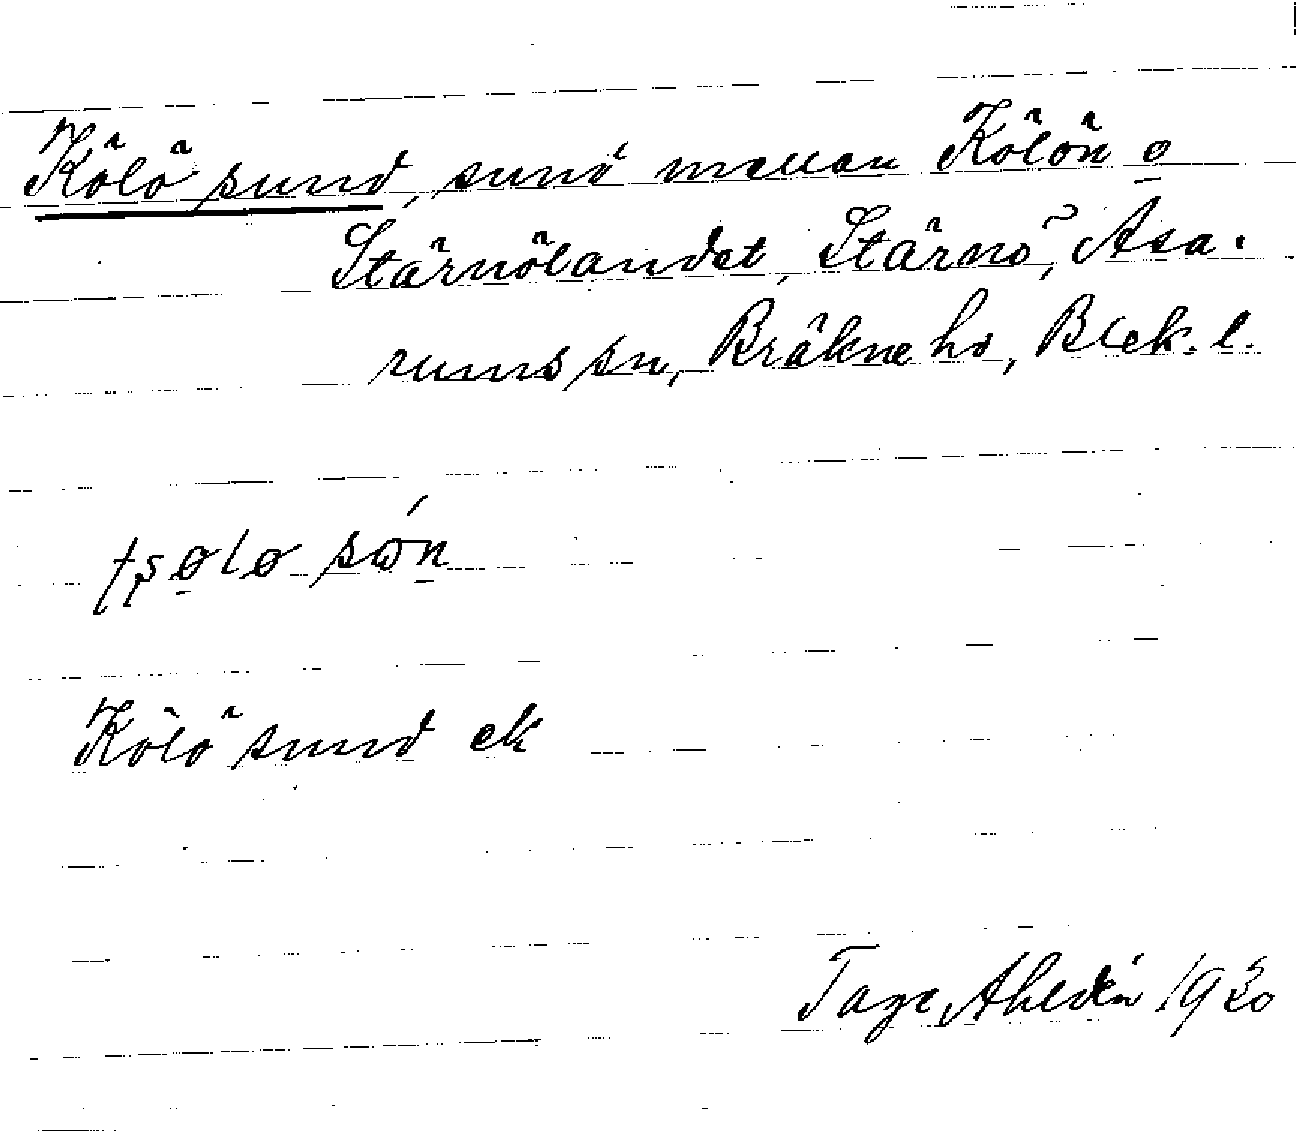 Kölö sund, sund mellan Kölön o
Stärnölandet, Stärnö, Asa-
rums sn, Bräkne hd, Blek. l.
Kölö sund ek
Tage Ahldén 1930